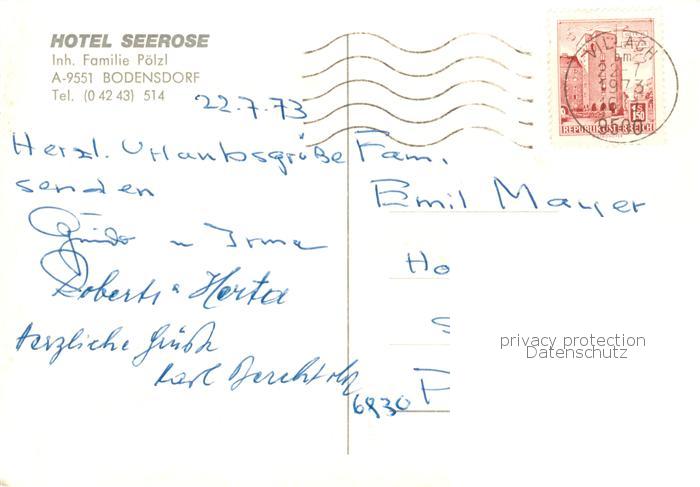 HOTEL SEEROSE
Inh. Familie Pölzl
A-9551 BODENSDORF
Tel. (0 42 43) 514
22.7.73
Herzl. Urlaubsgrüße
senden
Guido u Irma
Roberts & Herta
Herzliche Grüße
Karl
Fam.
Emil Mayer
Ho
S
F
6930
privacy protection
Datenschutz
VILLACH
22.7
1973
9500
REPUBLIK ÖSTERREICH
1.50